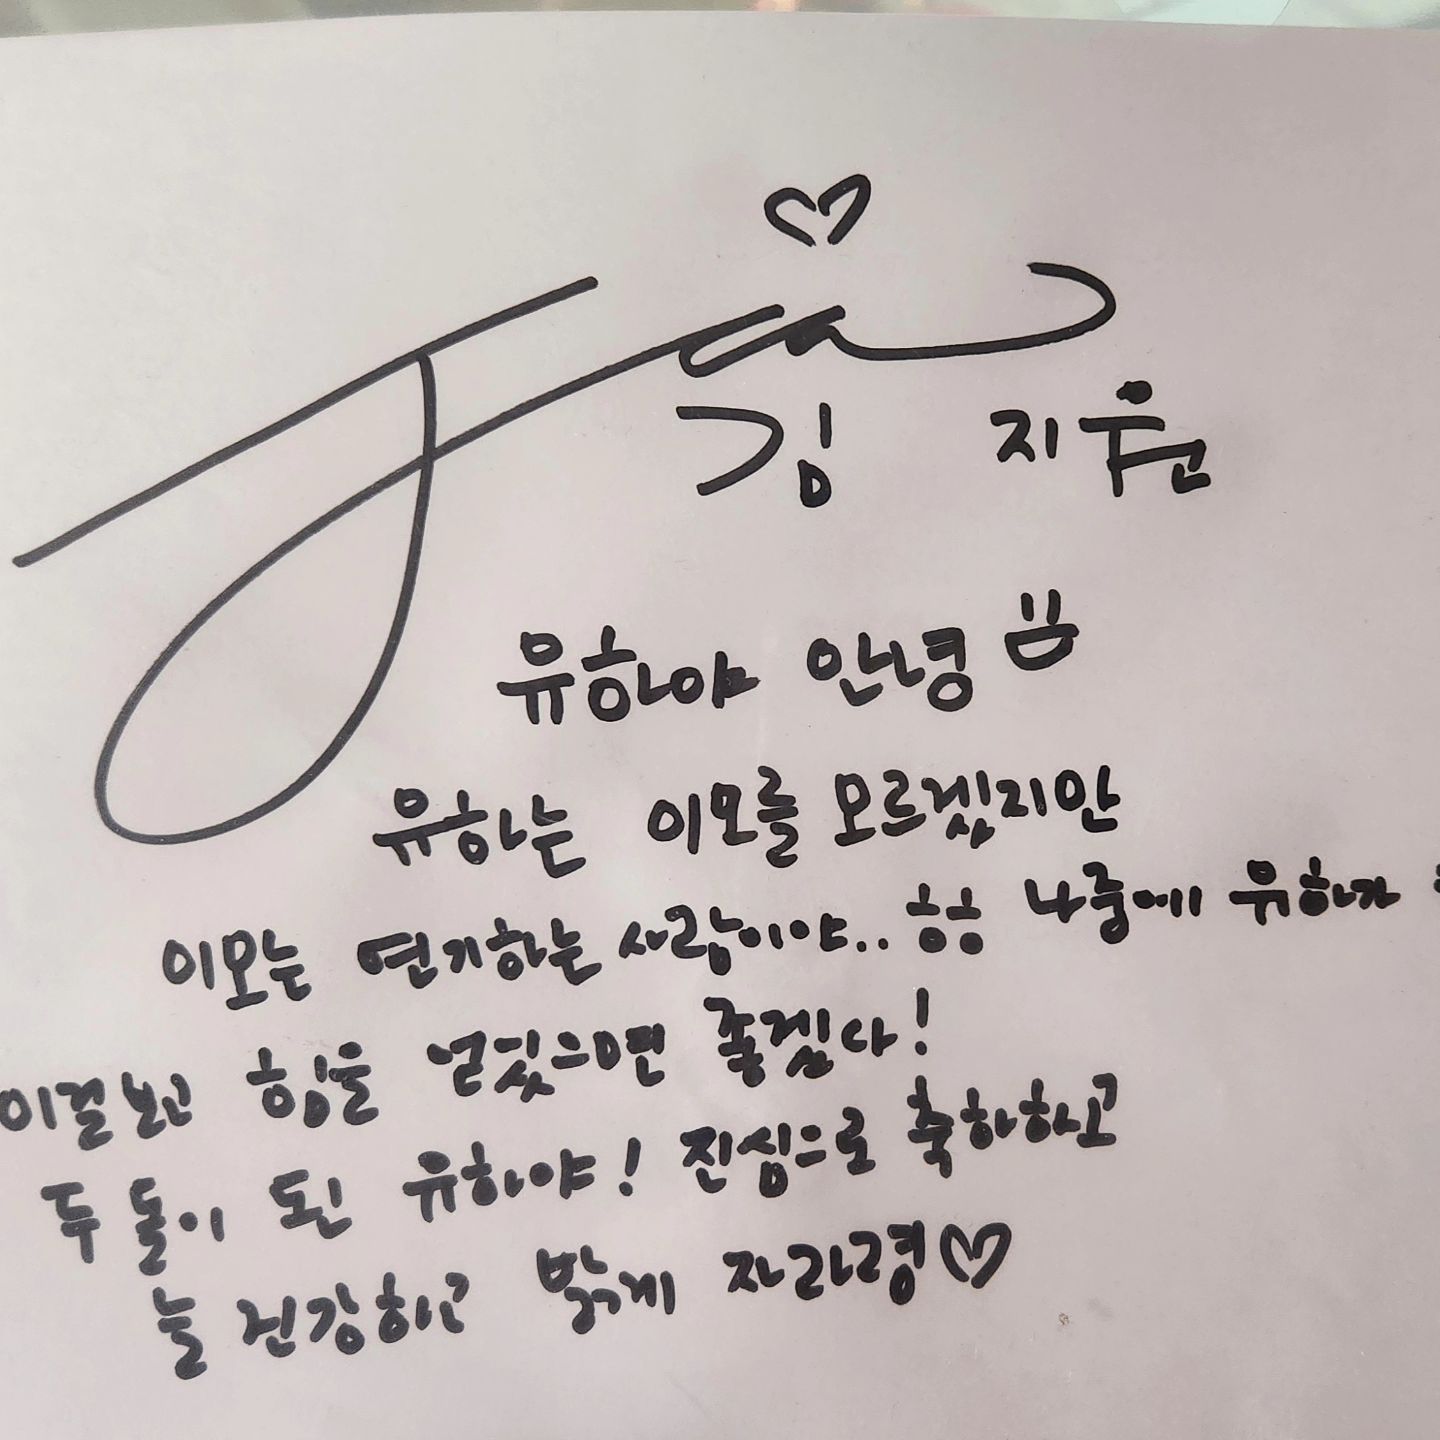 김 지훈
유하야 안녕
유하는 이모를 모르겠지만
이모는 연기하는 사람이야.. ㅎㅎ 나중에 유하가
이걸 보고 힘을 얻었으면 좋겠다!
두 돌이 된 유하야! 진심으로 축하하고
늘 건강하고 밝게 자라렴♡